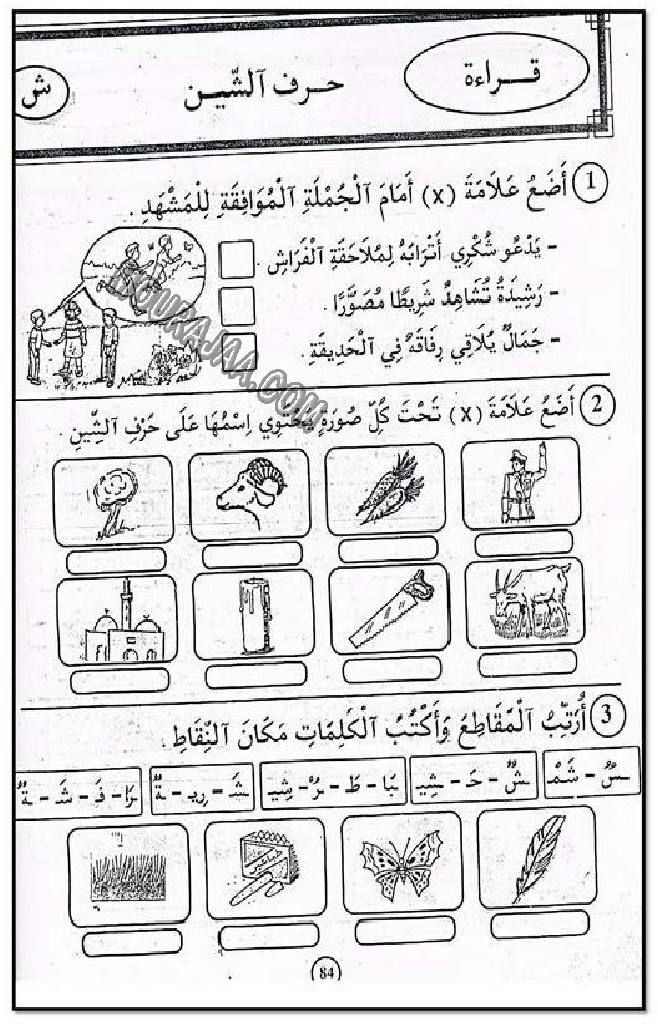 قــراءة
حـرف ٱلشّيـن
ش
1 أَضَعُ عَلَامَةَ (x) أَمَامَ ٱلْجُمْلَةِ ٱلْمُوَافِقَةِ لِلْمَشْهَدِ.
- يَدْعُو شُكْرِي أَتْرَابَهُ لِمُلَاحَقَةِ ٱلْفَرَاشِ.
- رَشِيدَةُ تُشَاهِدُ شَرِيطًا مُصَوَّرًا.
- جَمَالٌ يُلَاقِي رِفَاقَهُ فِي ٱلْحَدِيقَةِ.
DOURAJAA.COM
2 أَضَعُ عَلَامَةَ (x) تَحْتَ كُلِّ صُورَةٍ يَحْتَوِي اِسْمُهَا عَلَى حَرْفِ ٱلشِّينِ.
3 أُرَتِّبُ ٱلْمَقَاطِعَ وَأَكْتُبُ ٱلْكَلِمَاتِ مَكَانَ ٱلنِّقَاطِ.
ـسٌ - شَمْ
ـشٌ - حَـ - شِيـ
بَا - طَ - ـرُ - شِيـ
شَـ - رِيـ - ـةٌ
رَا - فَـ - شَـ - ـةٌ
84